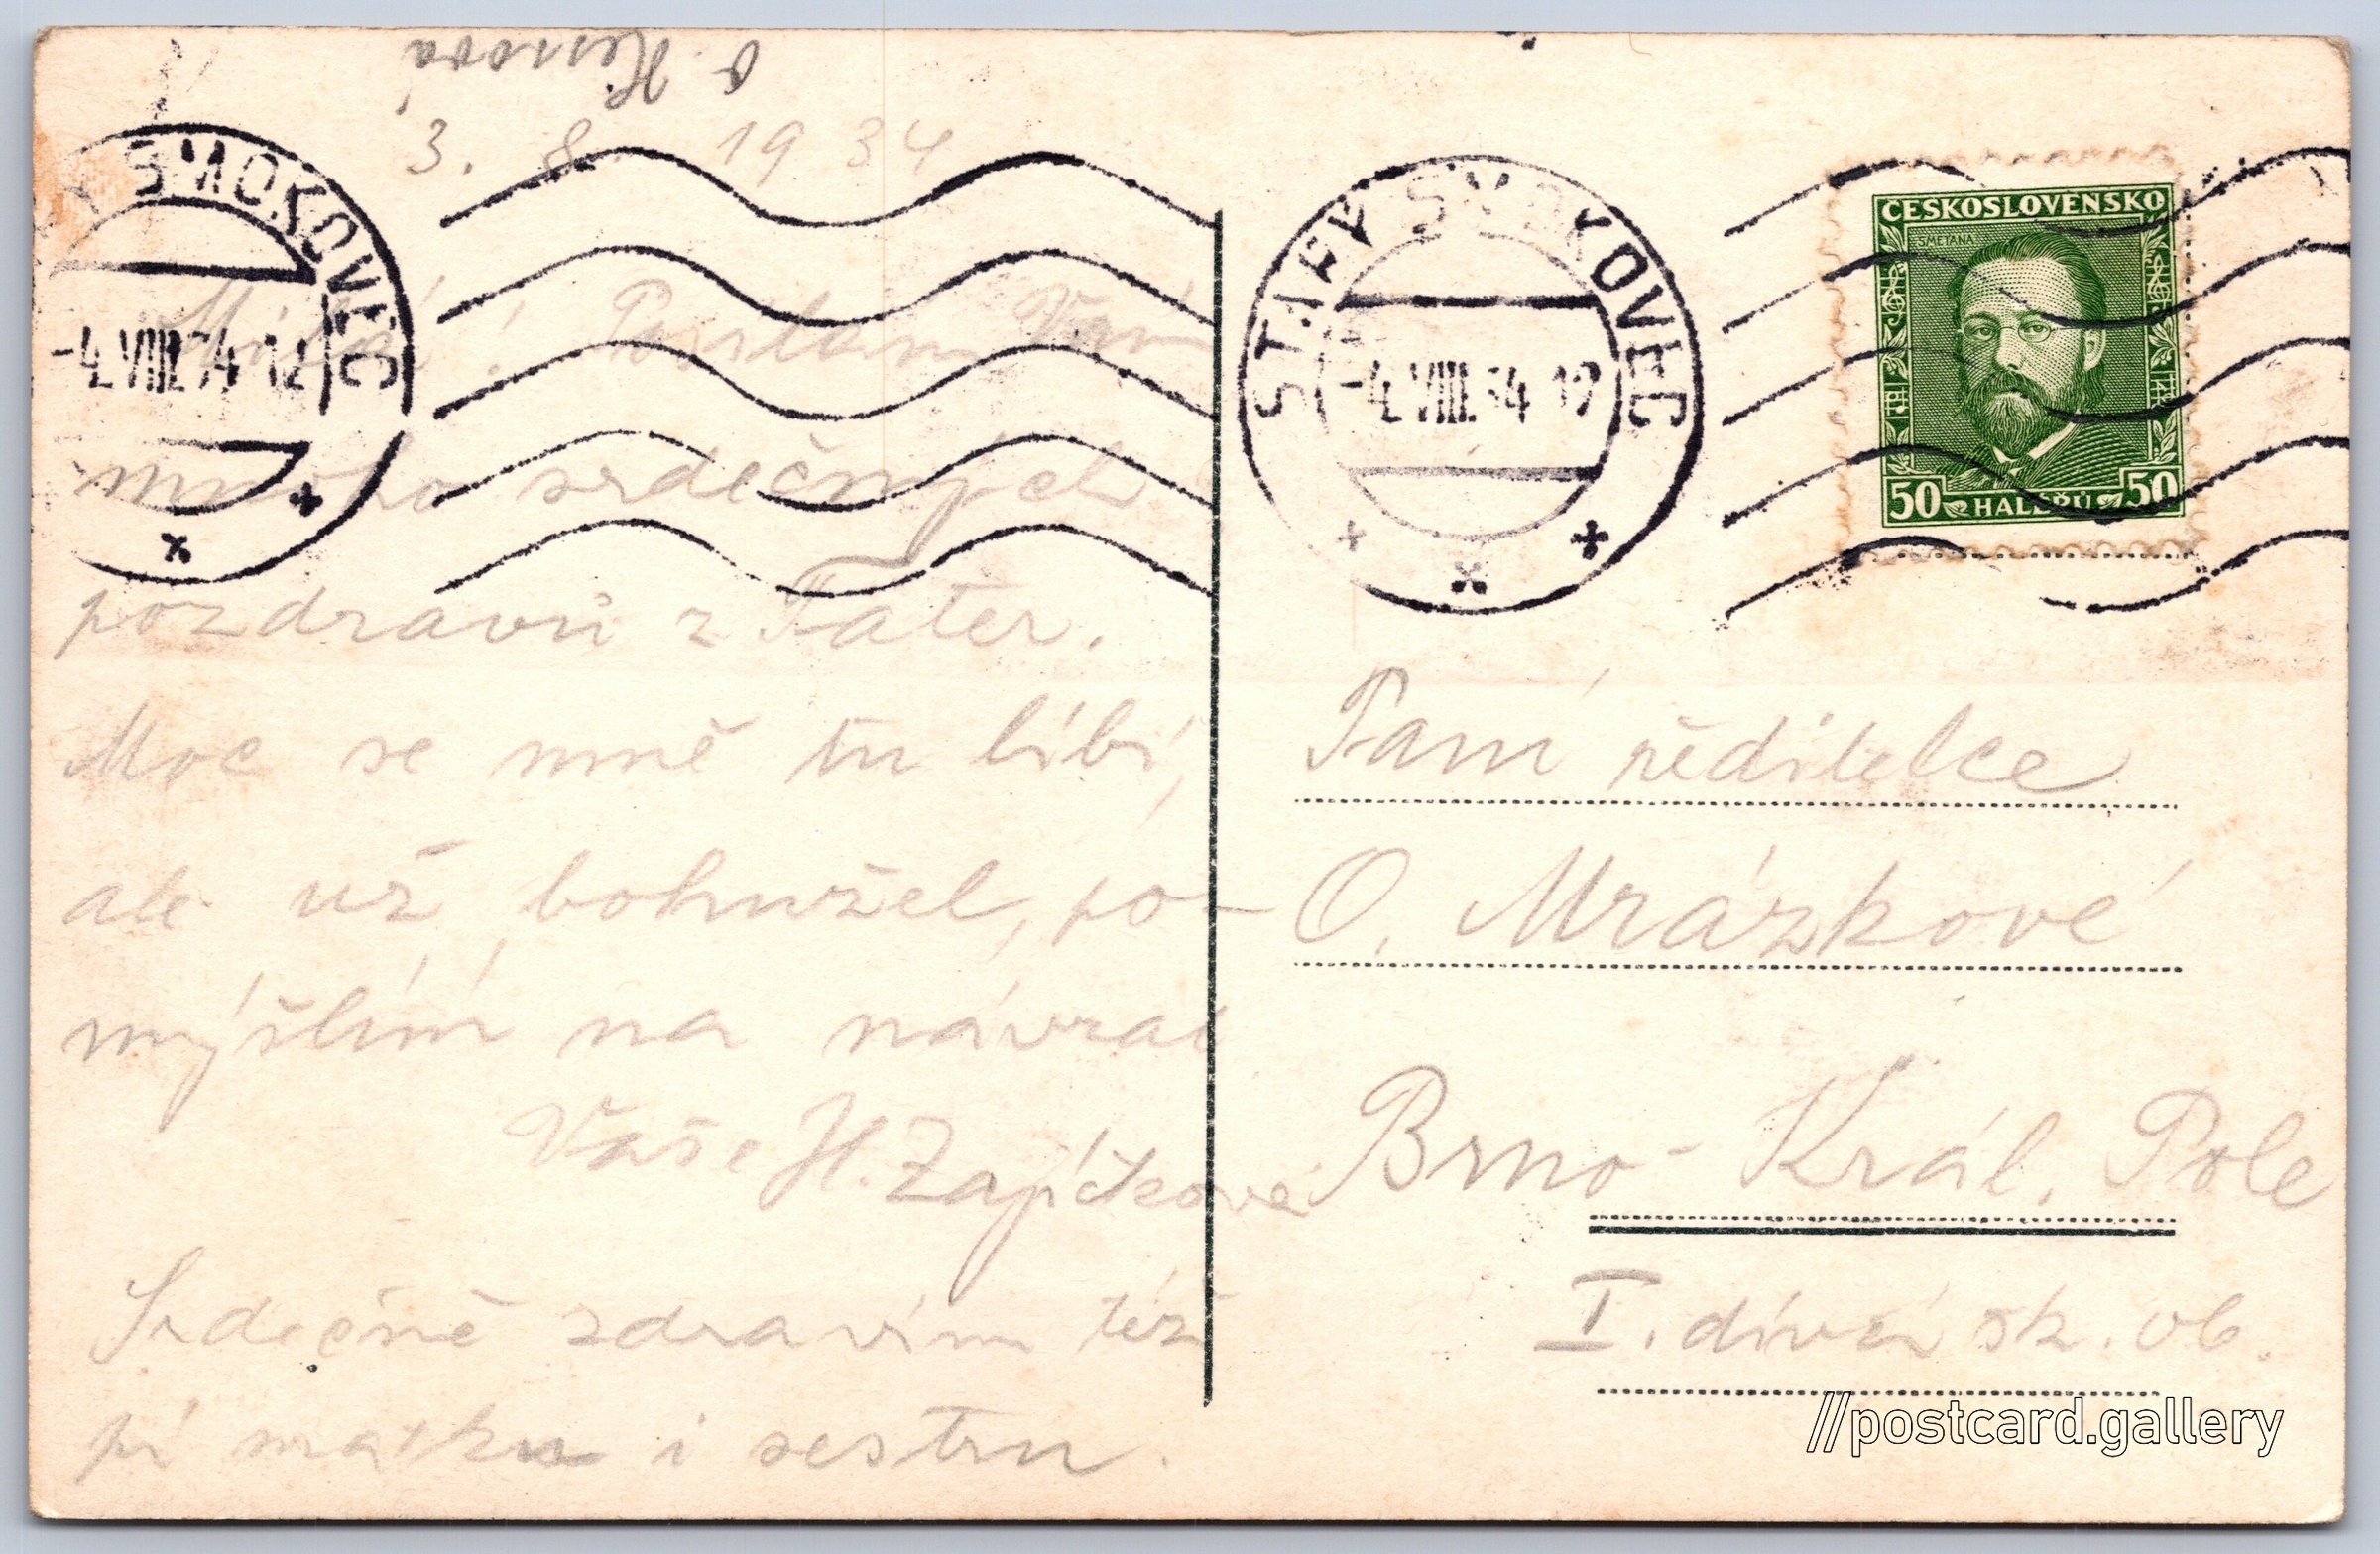 O. Hessová
3. 8. 1934
STARÝ SMOKOVEC
-4.VIII.34 12
STARÝ SMOKOVEC
-4.VIII.34 12
ČESKOSLOVENSKO
SMETANA
50 HALÉŘŮ 50
Milá! Posílám Vám
mnoho srdečných
pozdravů z Tater.
Moc se mně tu líbí,
ale už, bohužel, po-
mýšlím na návrat
Vaše H. Zajíčková
Srdečně zdravím též
pí matku i sestru.
Paní ředitelce
O. Mrázkové
Brno - Král. Pole
I. dívčí šk. ob.
//postcard.gallery